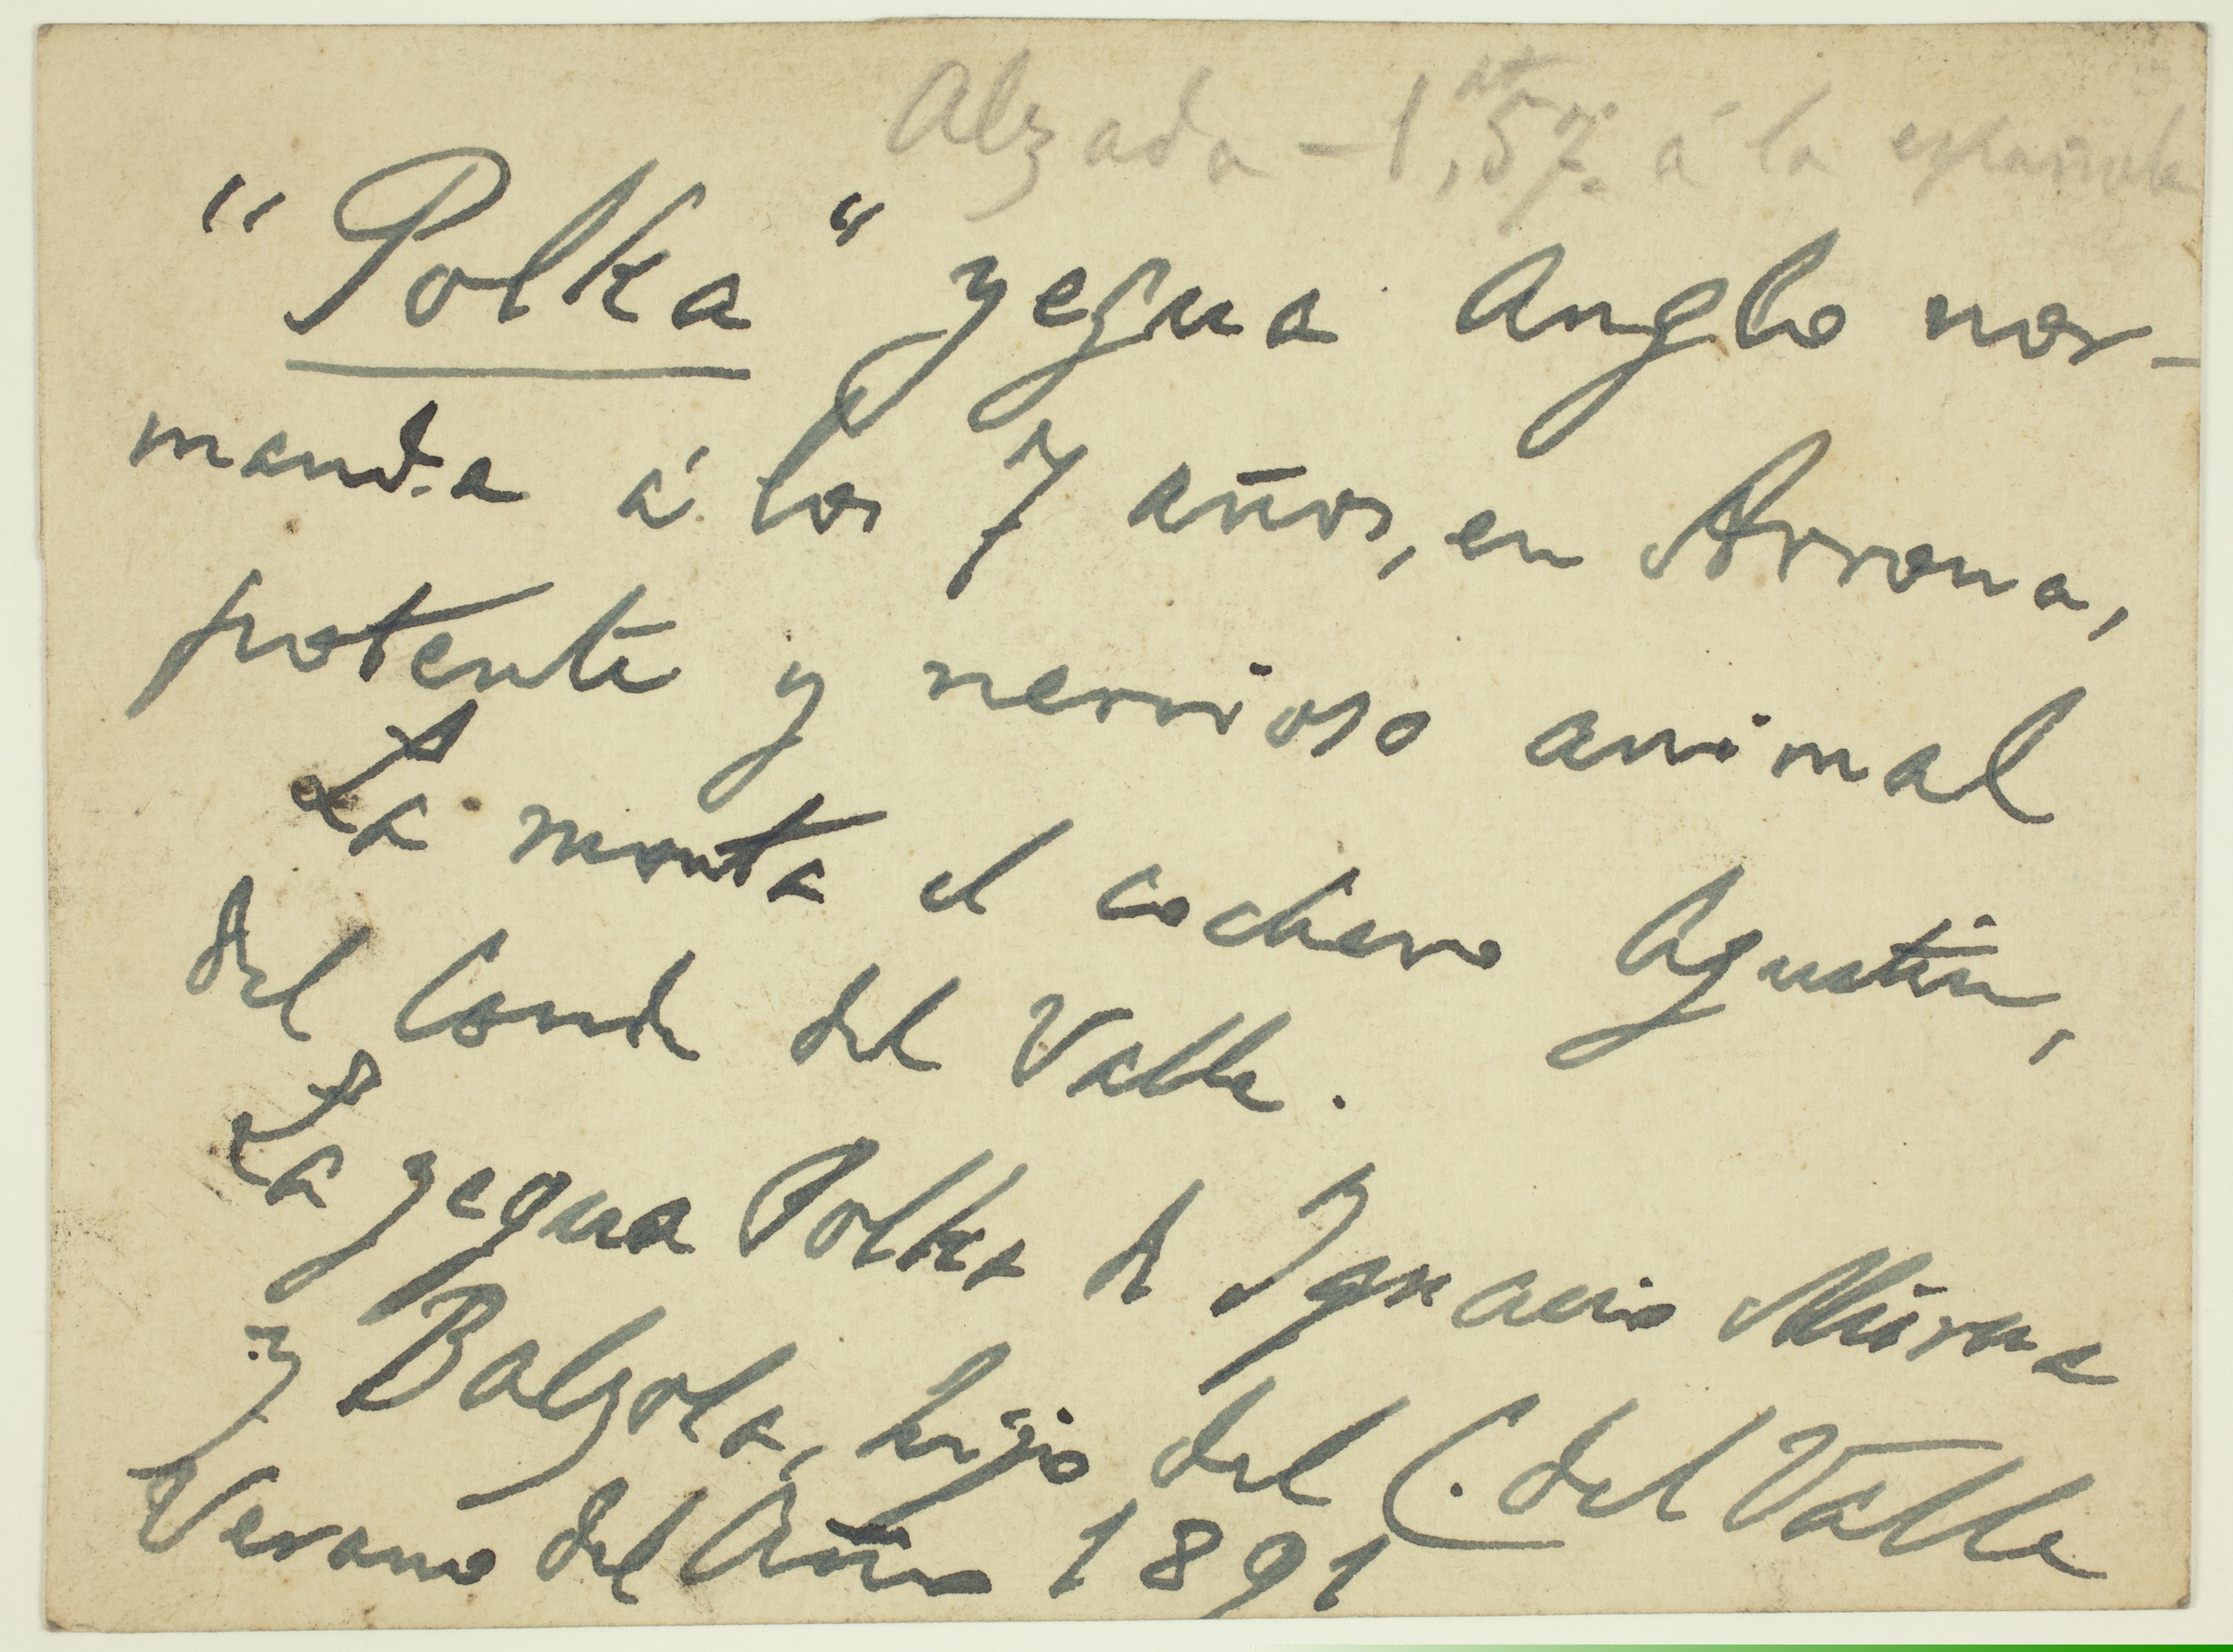 Alzada - 1,57 á la española
"Polka" yegua Anglo nor-
manda á los 7 años, en Arrona,
potente y nervioso animal
La monta el cochero Agustín,
del Conde del Valle.
La yegua Polka de Ignacio Murua
y Balzola, hijo del C. del Valle
Verano del Año 1891